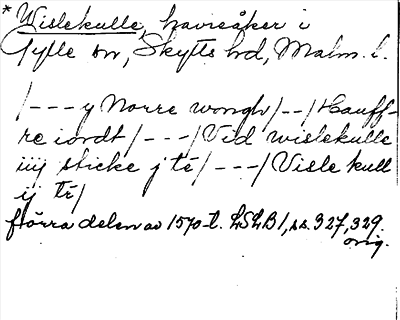 * Wislekulle, havreåker i
Gylle sn, Skytts hd, Malm. l.
/---y Norre wongh/--/Hauff-
re iordt/---/Vid wislekulle
iiij sticke j tē/---/Visle kull
ij tē/
förra delen av 1570-t. LSLB1, ss. 327, 329.
orig.